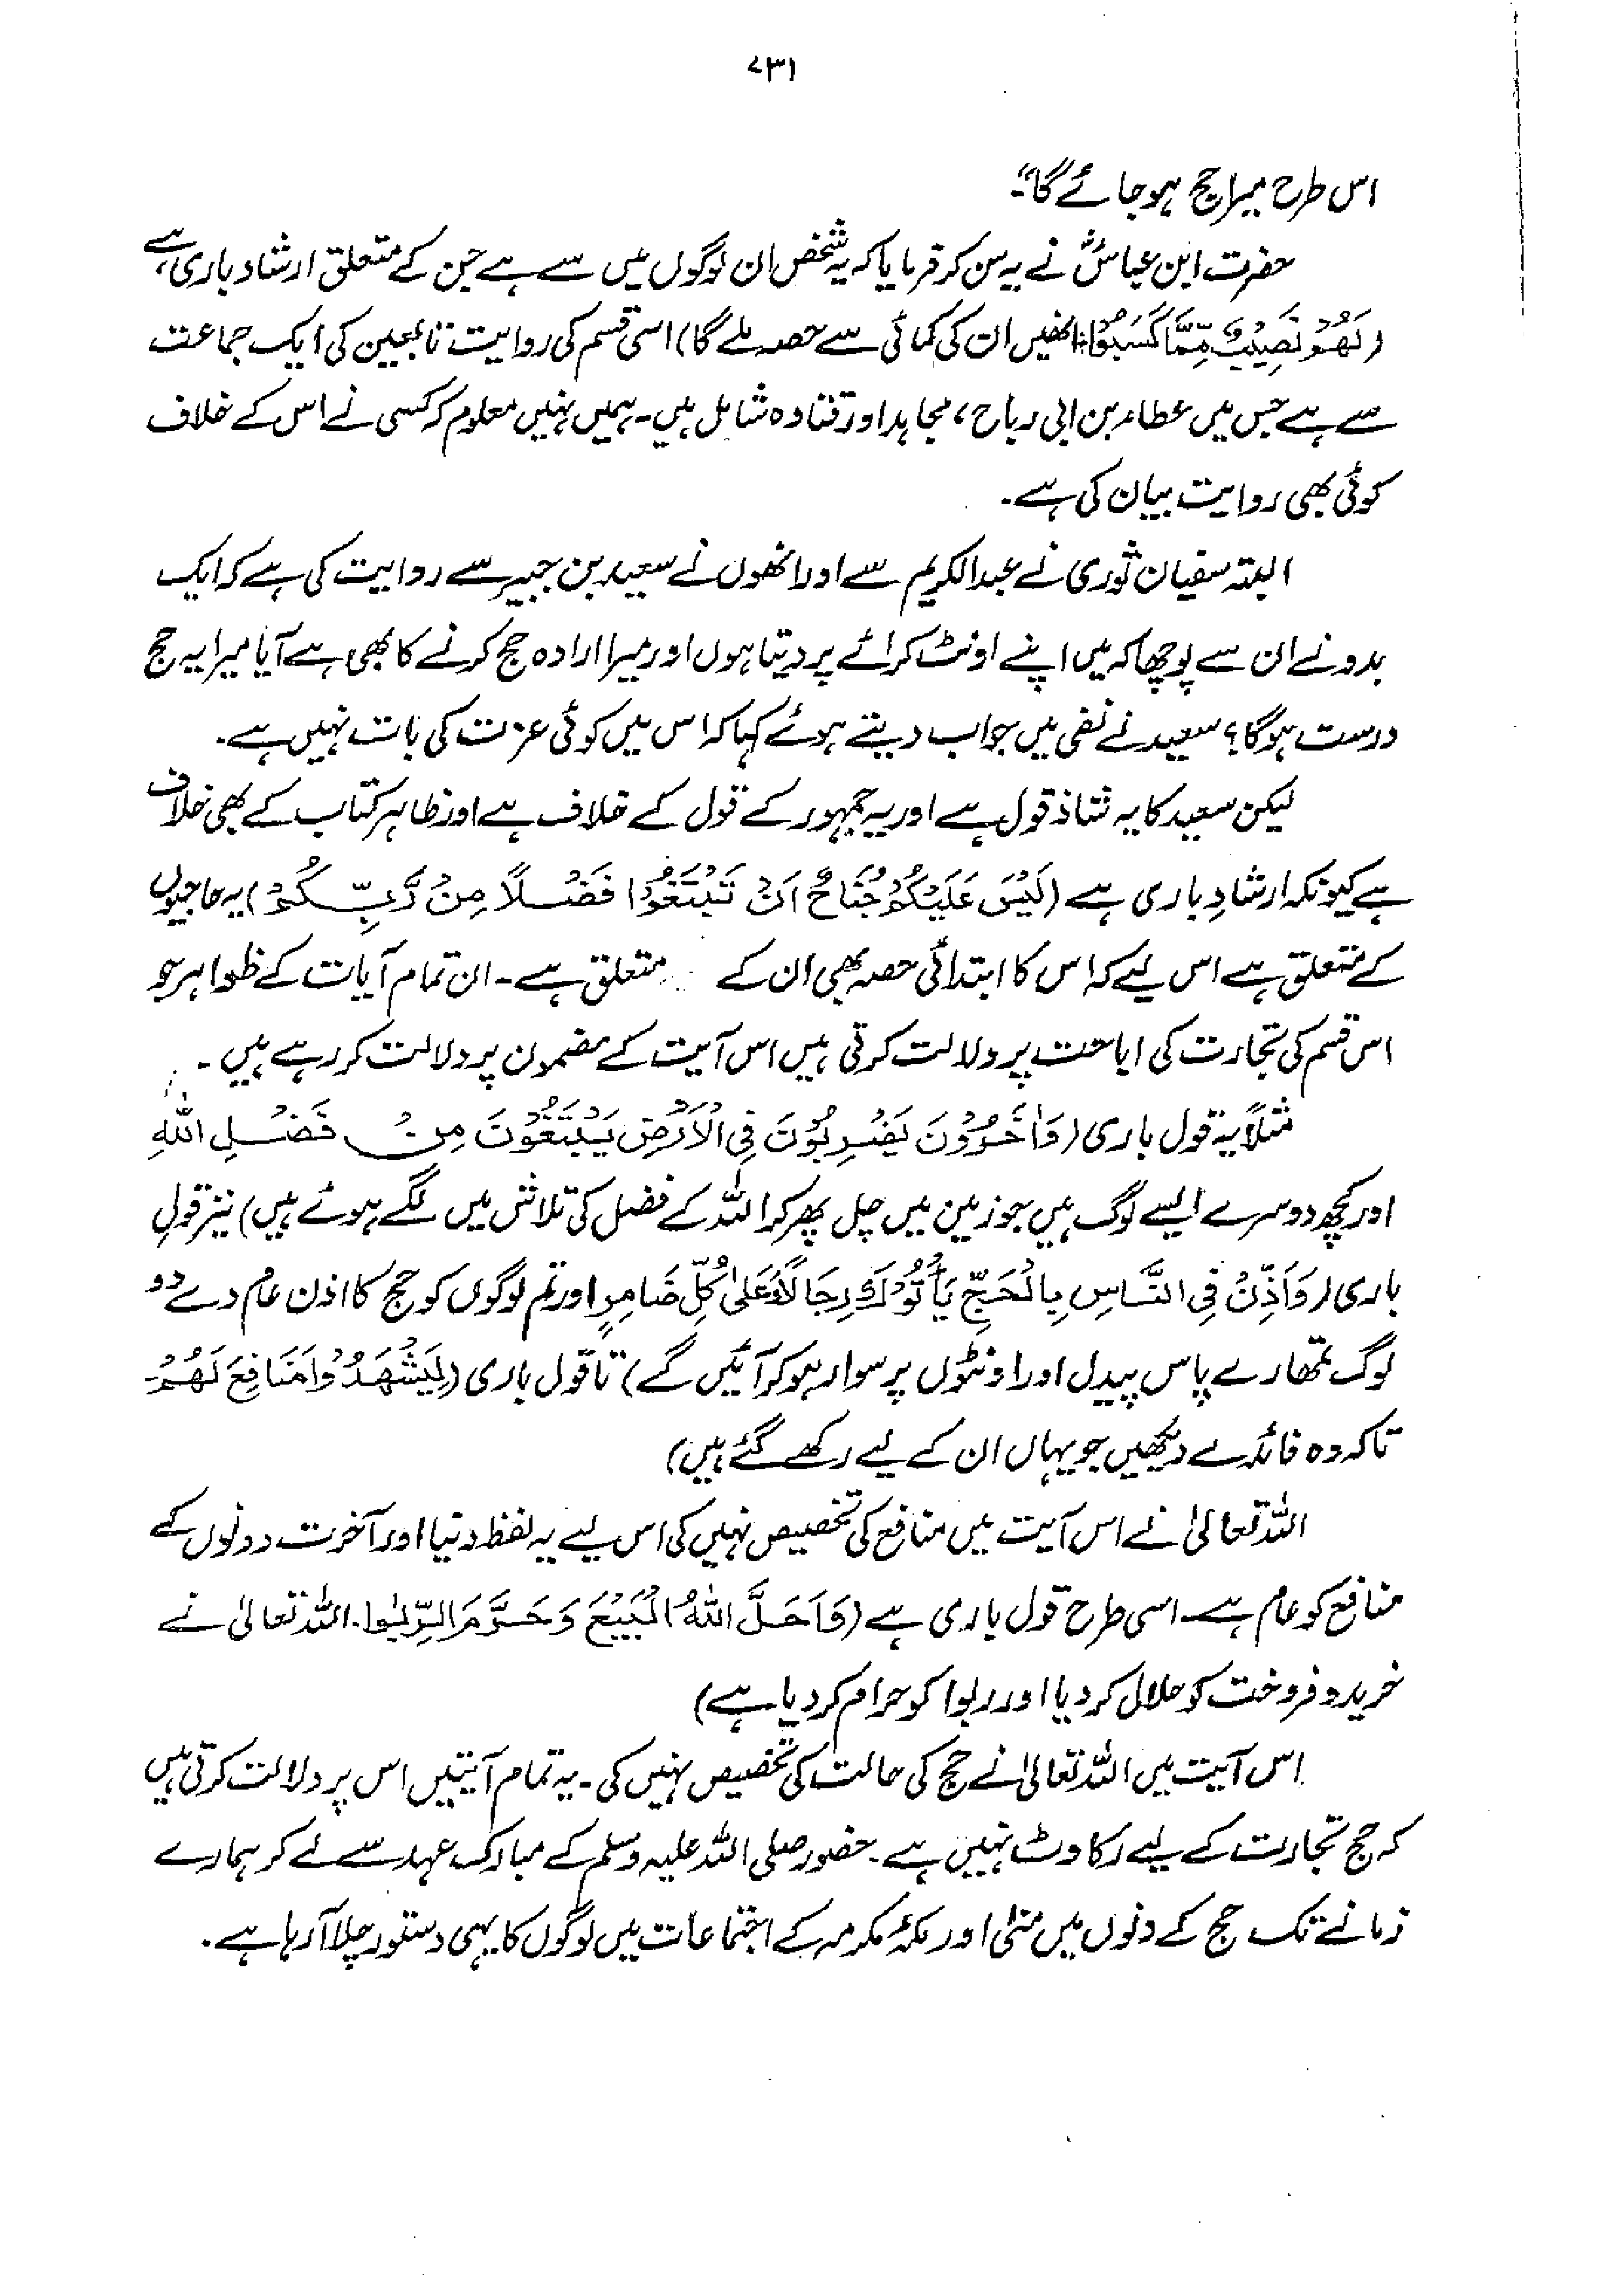 ۷۳۱
اس طرح میرا حج ہو جائے گا"۔
حضرت ابن عباسؓ نے یہ سن کر فرمایا کہ یہ شخص ان لوگوں میں سے ہے جن کے متعلق ارشاد باری ہے،
(لَهُمْ نَصِيْبٌ مِّمَّا كَسَبُوْا انھیں ان کی کمائی سے حصہ ملے گا) اسی قسم کی روایت تابعین کی ایک جماعت
سے ہے جس میں عطاء بن ابی رباح، مجاہد اور قتادہ شامل ہیں۔ ہمیں نہیں معلوم کہ کسی نے اس کے خلاف
کوئی بھی روایت بیان کی ہے۔
البتہ سفیان ثوری نے عبدالکریم سے اور انھوں نے سعید بن جبیر سے روایت کی ہے کہ ایک
بدو نے ان سے پوچھا کہ میں اپنے اونٹ کرائے پر دیتا ہوں اور میرا ارادہ حج کرنے کا بھی ہے آیا میرا یہ حج
درست ہوگا؟ سعید نے نفی میں جواب دیتے ہوئے کہا کہ اس میں کوئی عزت کی بات نہیں ہے۔
لیکن سعید کا یہ شاذ قول ہے اور یہ جمہور کے قول کے خلاف ہے اور ظاہر کتاب کے بھی خلاف
ہے کیونکہ ارشادِ باری ہے (لَيْسَ عَلَيْكُمْ جُنَاحٌ اَنْ تَبْتَغُوْا فَضْلًا مِنْ رَّبِّكُمْ) یہ حاجیوں
کے متعلق ہے اس لیے کہ اس کا ابتدائی حصہ بھی ان کے متعلق ہے۔ ان تمام آیات کے ظواہر جو
اس قسم کی تجارت کی اباحت پر دلالت کرتی ہیں اس آیت کے مضمون پر دلالت کر رہے ہیں۔
مثلاً یہ قول باری (وَاٰخَرُوْنَ يَضْرِبُوْنَ فِي الْاَرْضِ يَبْتَغُوْنَ مِنْ فَضْلِ اللّٰهِ
اور کچھ دوسرے ایسے لوگ ہیں جو زمین میں چل پھر کر اللہ کے فضل کی تلاش میں لگے ہوئے ہیں) نیز قولِ
باری (وَاَذِّنْ فِي النَّاسِ بِالْحَجِّ يَأْتُوْكَ رِجَالًا وَّعَلٰى كُلِّ ضَامِرٍ اور تم لوگوں کو حج کا اذن عام دے دو
لوگ تمھارے پاس پیدل اور اونٹوں پر سوار ہو کر آئیں گے) تا قول باری (لِيَشْهَدُوْا مَنَافِعَ لَهُمْ۔
تاکہ وہ فائدے دیکھیں جو یہاں ان کے لیے رکھے گئے ہیں)
اللہ تعالیٰ نے اس آیت میں منافع کی تخصیص نہیں کی اس لیے یہ لفظ دنیا اور آخرت دونوں کے
منافع کو عام ہے۔ اسی طرح قول باری ہے (وَاَحَلَّ اللّٰهُ الْبَيْعَ وَحَرَّمَ الرِّبٰوا۔ اللہ تعالیٰ نے
خرید و فروخت کو حلال کر دیا اور ربوا کو حرام کر دیا ہے)
اس آیت میں اللہ تعالیٰ نے حج کی حالت کی تخصیص نہیں کی۔ یہ تمام آیتیں اس پر دلالت کرتی ہیں
کہ حج تجارت کے لیے رکاوٹ نہیں ہے۔ حضور صلی اللہ علیہ وسلم کے مبارک عہد سے لے کر ہمارے
زمانے تک حج کے دنوں میں منیٰ اور مکۂ مکرمہ کے اجتماعات میں لوگوں کا یہی دستور چلا آ رہا ہے۔